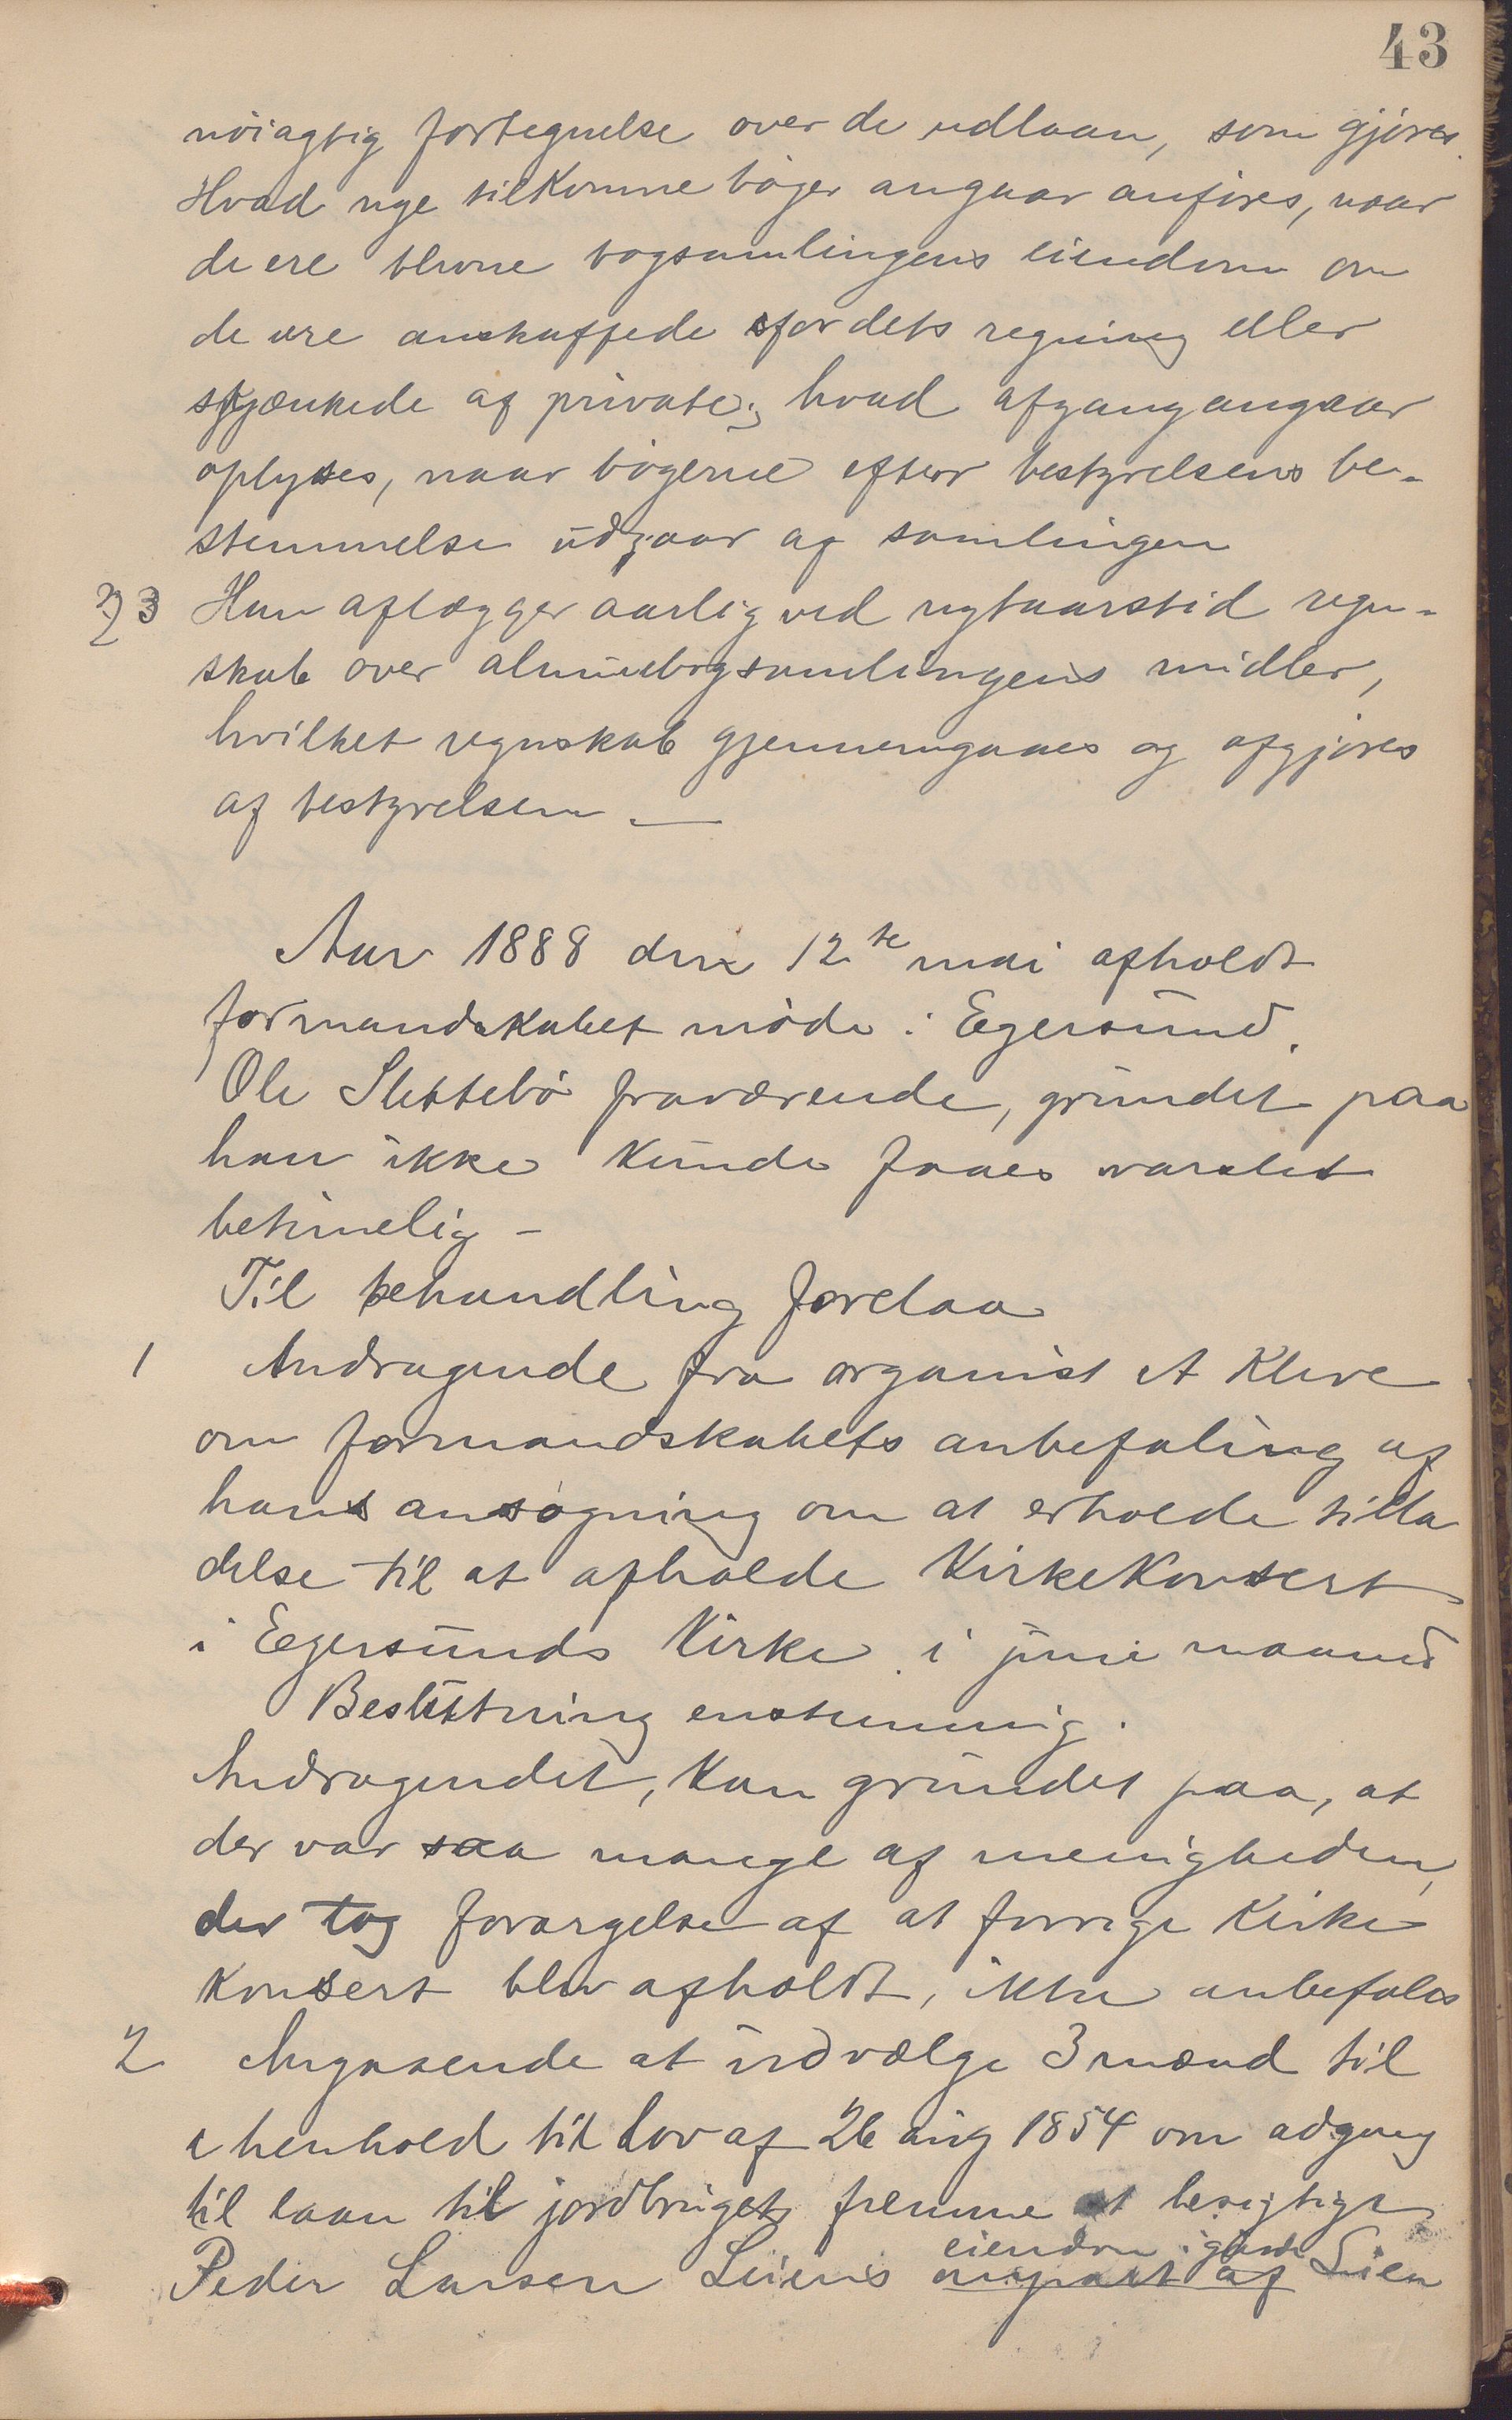 43
nöiagtig fortegnelse over de udlaan, som gjöres.
Hvad nye tilkomne böger angaar anföres, naar
de ere blevne bogsamlingens eiendom om
de ere anskaffede for dets regning eller
skjænkede af private; hvad afgang angaar
oplyses, naar bögerne efter bestyrelsens be-
stemmelse udgaar af samlingen
3 Han aflægger aarlig ved nytaarstid regn-
skab over almuebogsamlingens midler,
hvilket regnskab gjennemgaaes og afgjöres
af bestyrelsen —
Aar 1888 den 12te mai afholdt
formandskabet möde i Egersund.
Ole Slettebö fraværende, grundet paa
han ikke kunde faaes varslet
betimelig –
Til behandling forelaa
1 Andragende fra organist A Kleve
om formandskabets anbefaling af
hans ansögning om at erholde tilla
delse til at afholde Kirkekonsert
i Egersunds Kirke i juni maaned
Beslutning enstemmig.
Andragendet, kan grundet paa, at
der var saa mange af menigheden,
der tog forargelse af at forrige Kirke
konsert blev afholdt, ikke anbefales
2 Angaaende at udvælge 3 mænd til
i henhold til lov af 26 aug 1854 om adgang
til laan til jordbrugets fremme at besigtige
eiendom i gaarde
Peder Larsen Leiens anpart af Lien